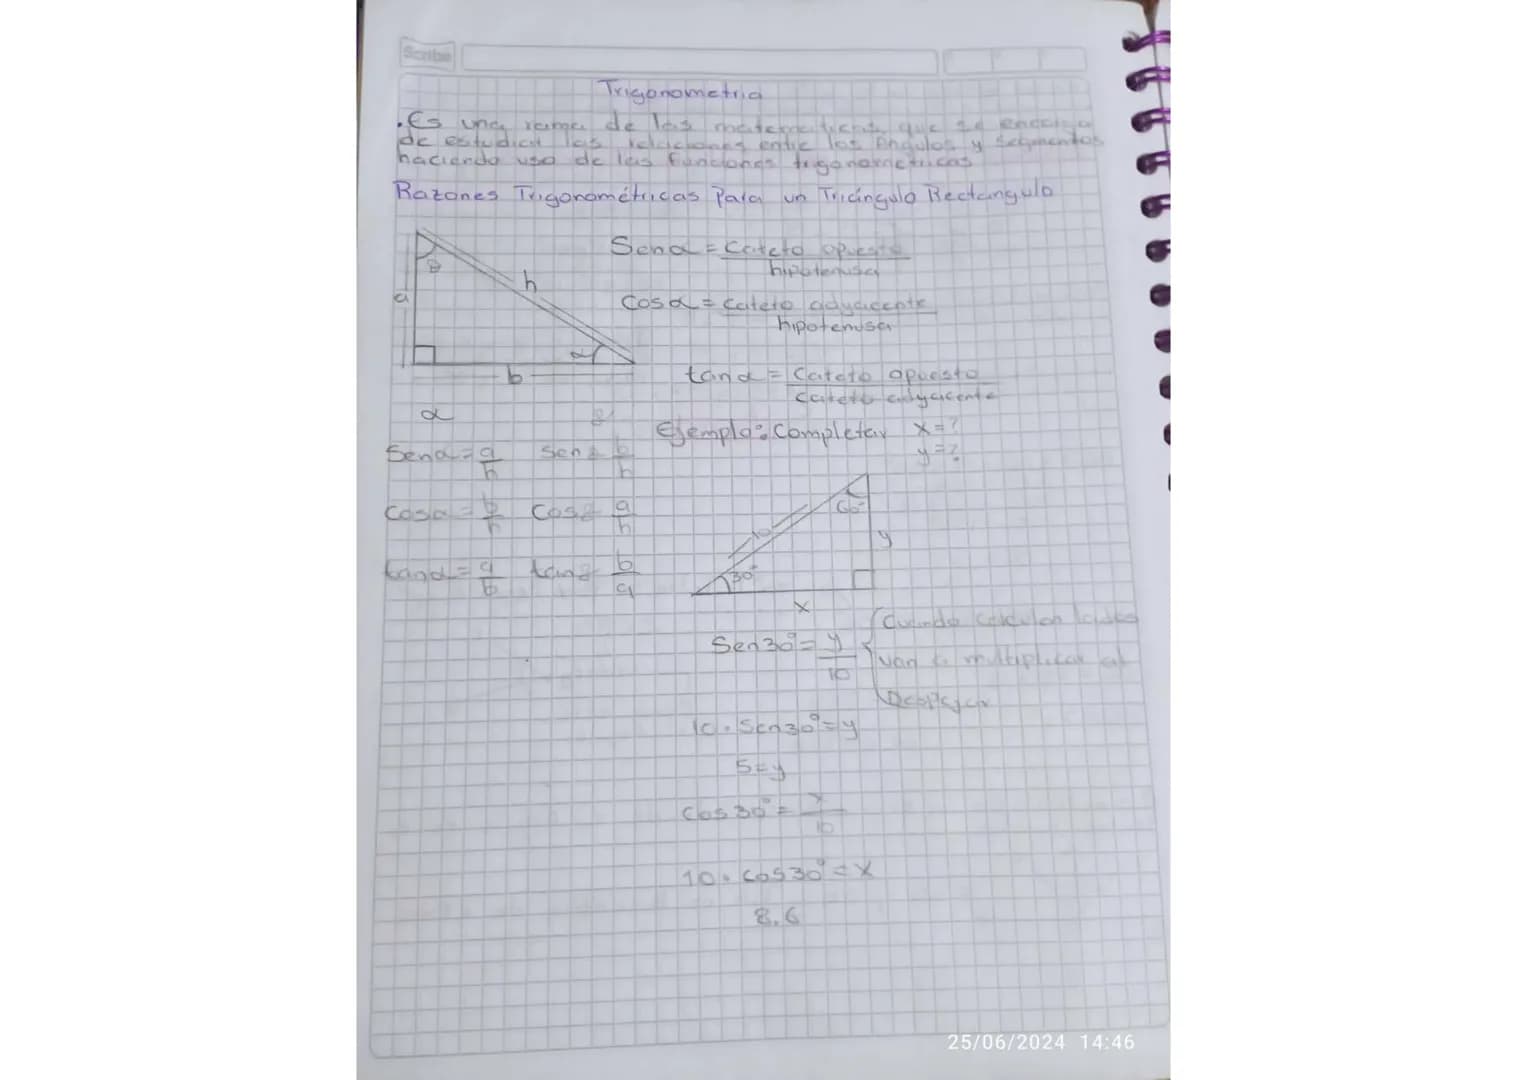 Scribe
Trigonometria
.Es una rama de las matematicas que se encarga
de estudiar las relaciones entre los angulos y segmentos
haciendo uso de las funciones trigonometricas
Razones Trigonométricas Para un Triángulo Rectangulo
Senα = Cateto opuesto
hipotenusa
θ
h
a
Cosα = Cateto adyacente
hipotenusa
α
b
tanα = Cateto opuesto
Cateto adyacente
α
Ejemplo: Completar x=?
y=?
Senα = a/h sen b/h
Cosα = b/h Cos a/h
60°
10
y
tanα = a/b tan b/a
30°
x
Sen30° = y/10
Cuando calculen lados
van a multiplicar al
Despejar
10 · Sen30° = y
5=y
Cos30° = x/10
10 · Cos30° = x
8.6
25/06/2024 14:46